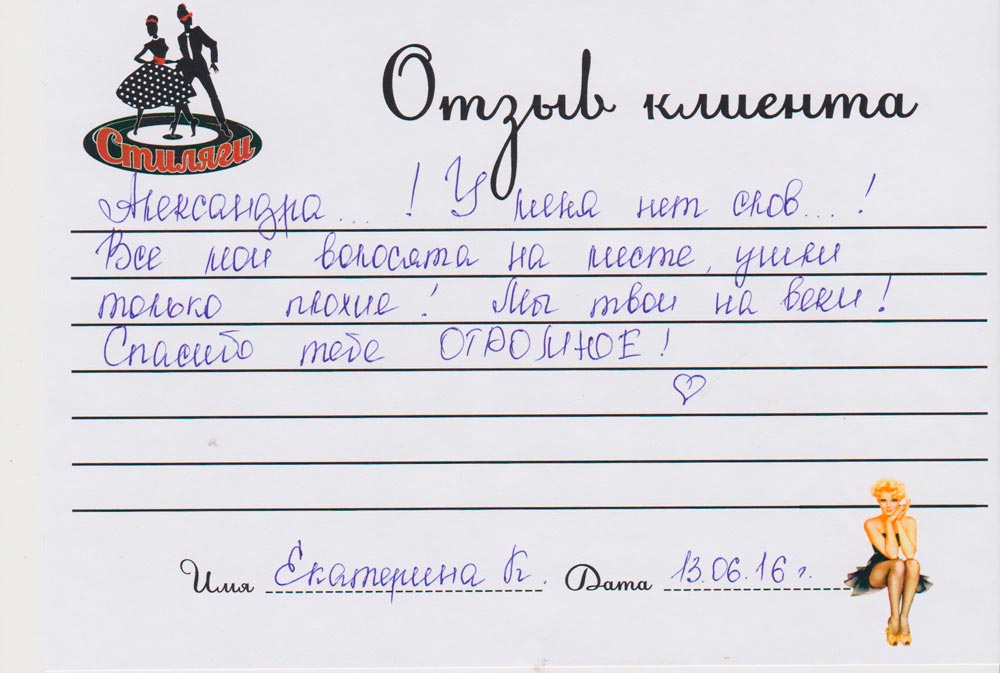 Стиляги
Отзыв клиента
Александра... ! У меня нет слов...!
Все мои волосята на месте, ушли
только плохие! Мы твои на веки!
Спасибо тебе ОГРОМНОЕ!
Имя Екатерина К. Дата 13.06.16 г.